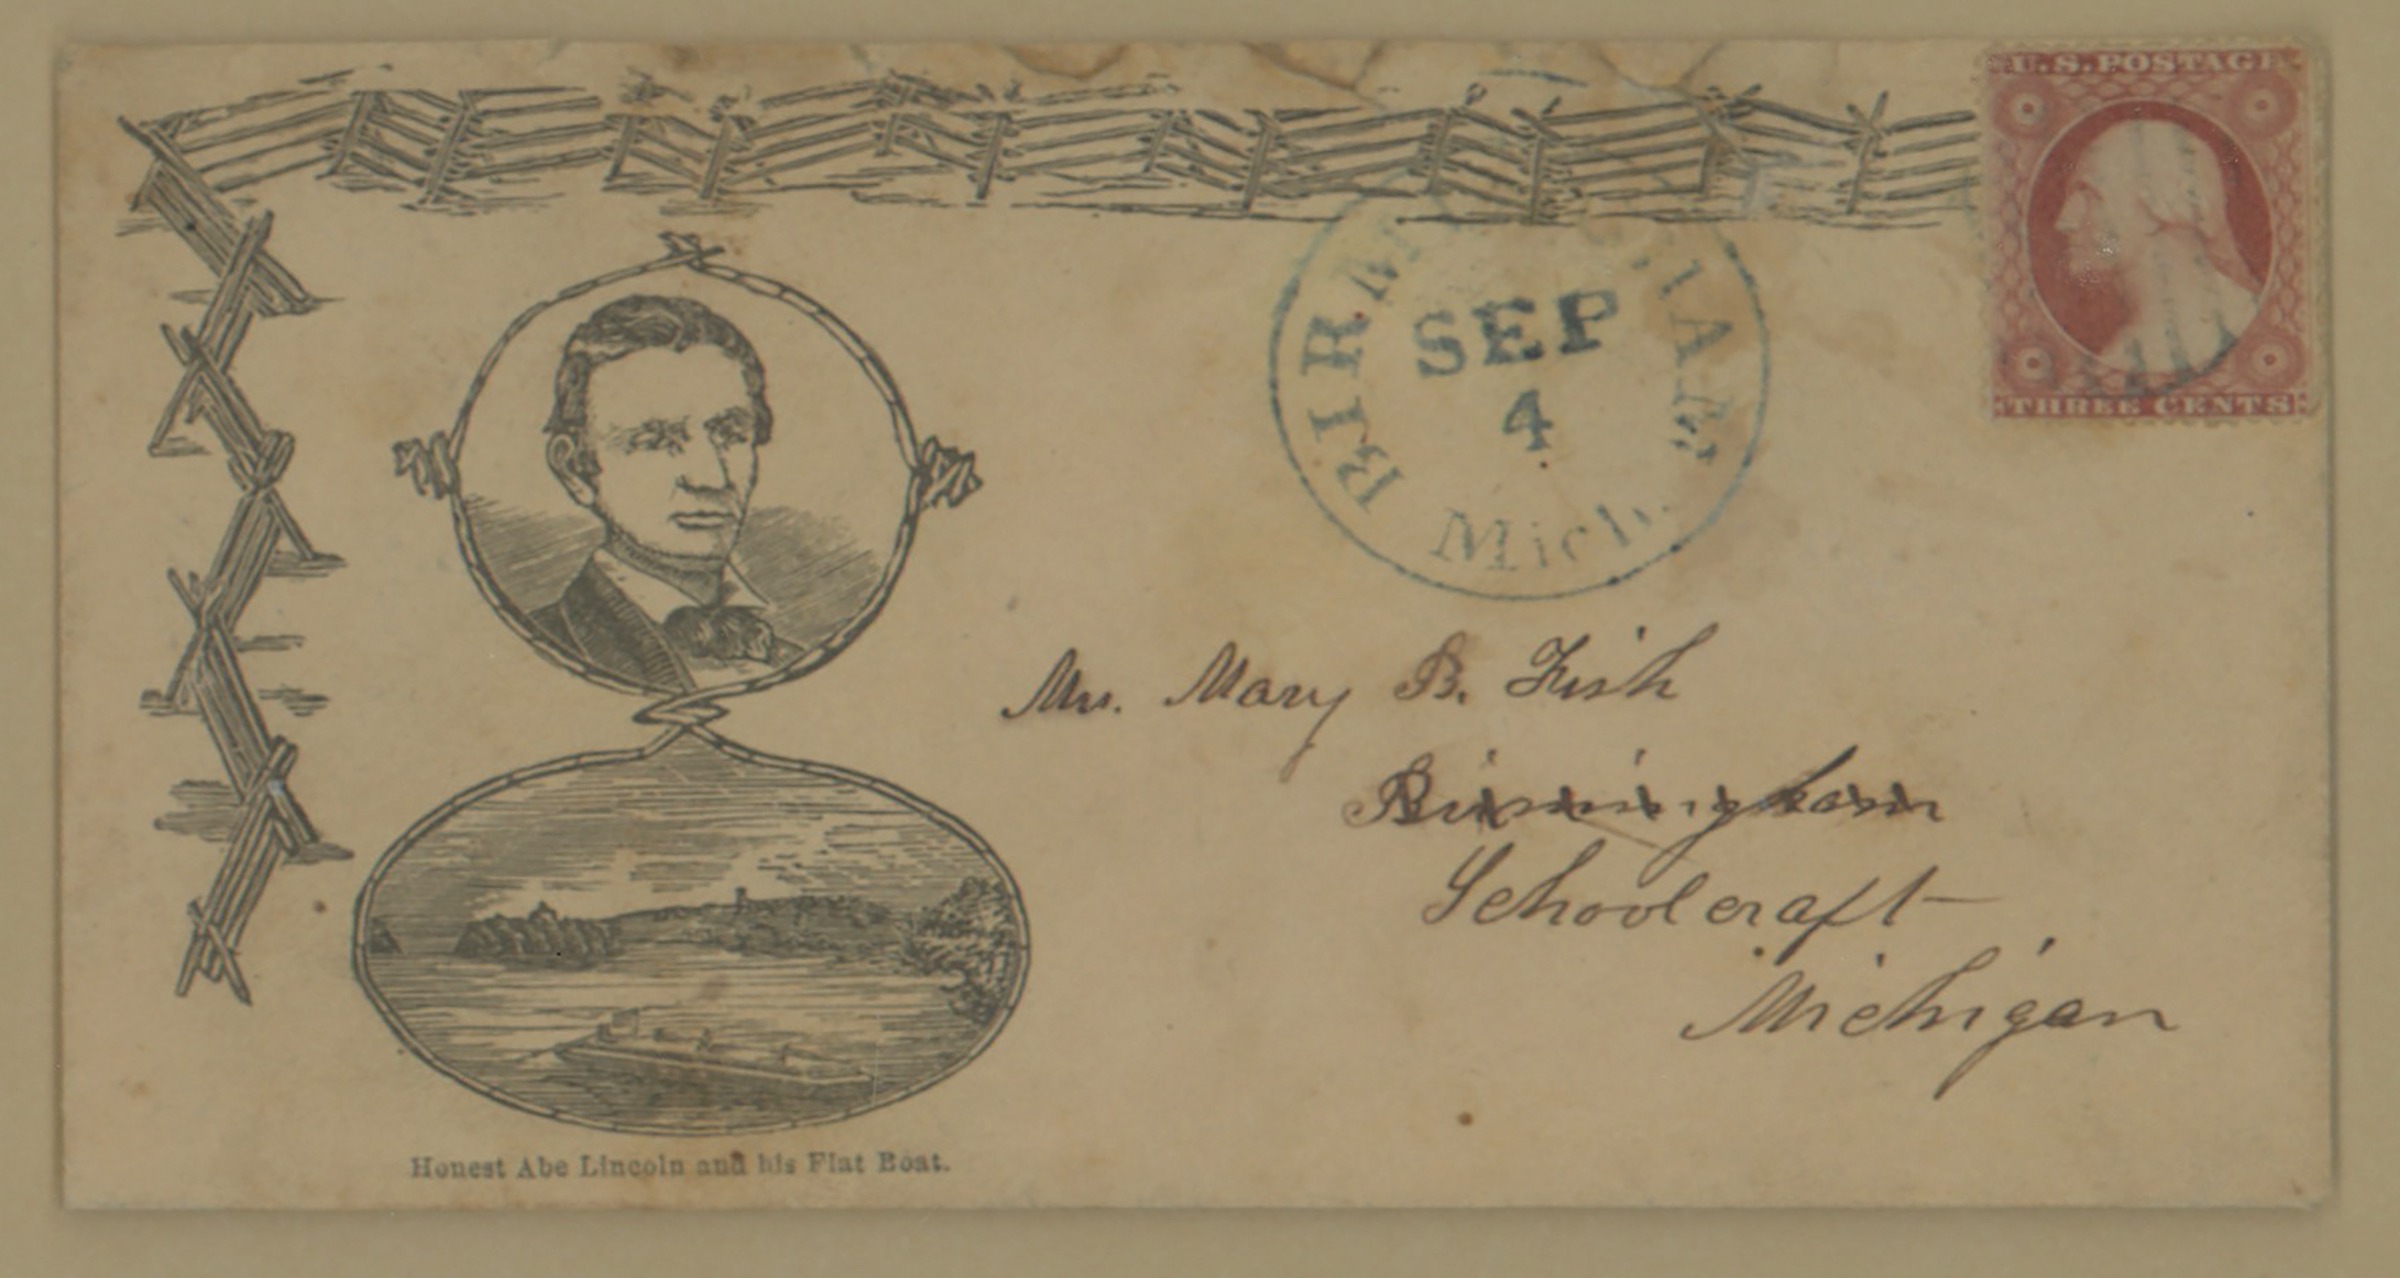 U.S. POSTAGE
THREE CENTS
BIRMINGHAM
SEP
4
Mich.
Mrs. Mary B. Fish
Birmingham
Schoolcraft
Michigan
Honest Abe Lincoln and his Flat Boat.